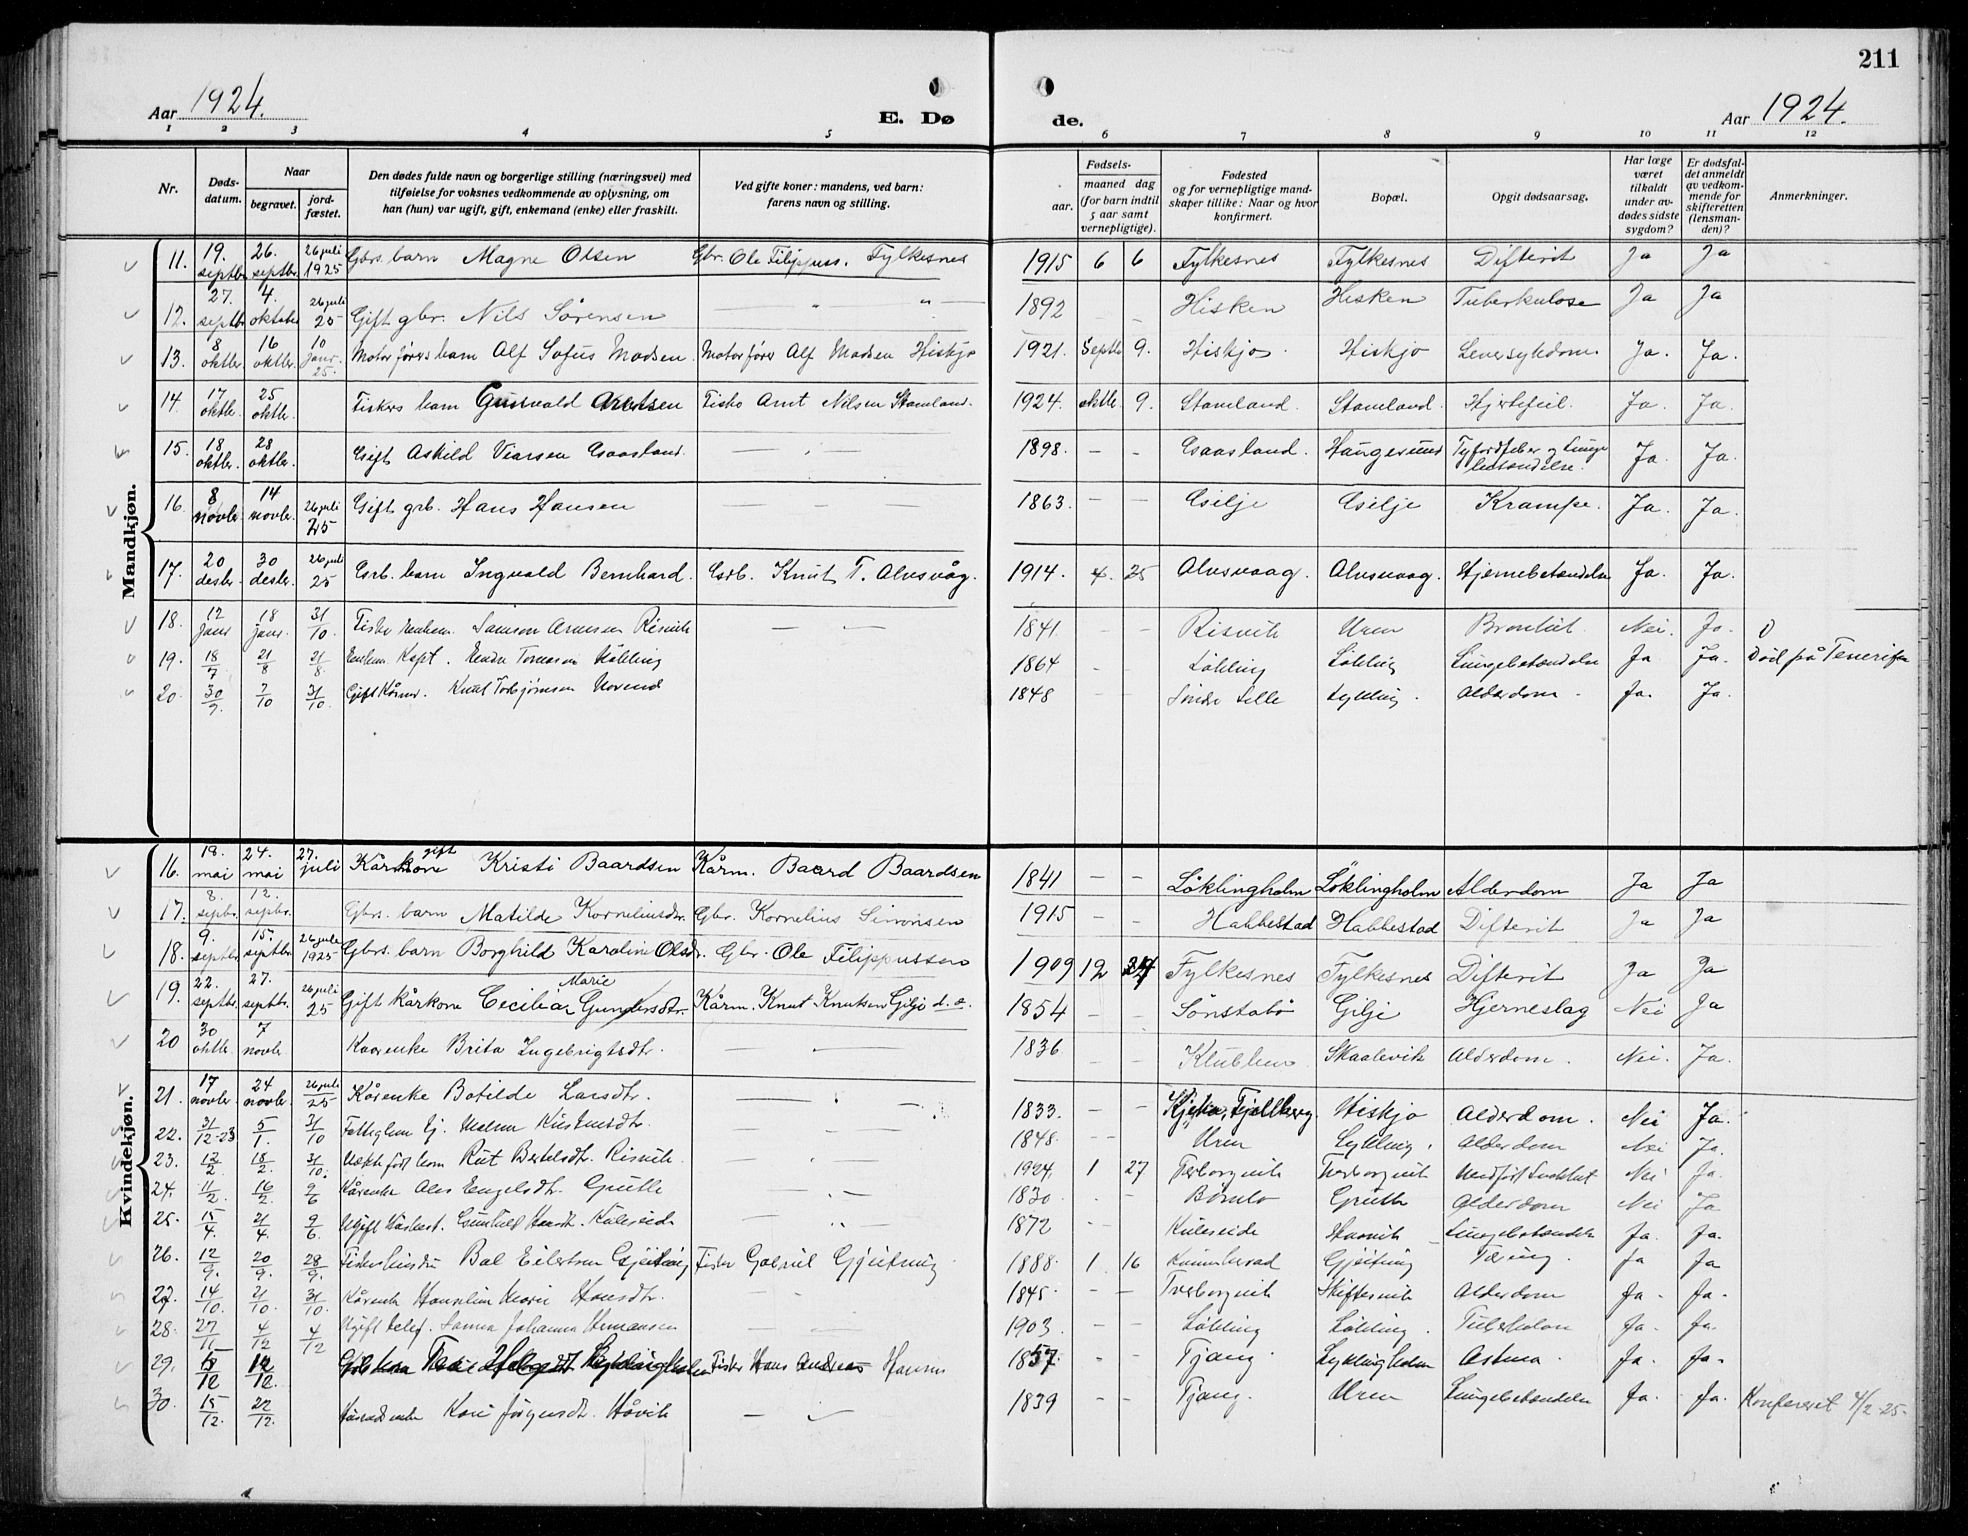 211
Aar 1924.
E. Dø de.
Aar 1924.
1 2 3 4 5 6 7 8 9 10 11 12
Nr.
Døds-datum.
Naar
begravet.
jord-fæstet.
Den dødes fulde navn og borgerlige stilling (næringsvei) med
tilføielse for voksnes vedkommende av oplysning, om
han (hun) var ugift, gift, enkemand (enke) eller fraskilt.
Ved gifte koner: mandens, ved barn:
farens navn og stilling.
Fødsels-
aar.
maaned dag
(for barn indtil
5 aar samt
vernepligtige).
Fødested
og for vernepligtige mand-
skaper tillike: Naar og hvor
konfirmert.
Bopæl.
Opgit dødsaarsag.
Har læge
været
tilkaldt
under av-
dødes sidste
sygdom?
Er dødsfal-
det anmeldt
av vedkom-
mende for
skifteretten
(lensman-
den)?
Anmerkninger.
Mandkjøn.
11. 19. septbr. 26. septbr. 26 juli 1925 Gbrs. barn Magne Olsen Gbr. Ole Filippuss. Fylkesnes 1915 6 6 Fylkesnes Fylkesnes Difterit Ja Ja
12. 27. septbr 4. oktober 26 juli 25 Gift gbr. Nils Sørensen — " " — 1892 - - Hisken Hisken Tuberkulose Ja Ja
13. 8 oktbr. 16 oktbr. 10 janr. 25. Motorførers barn Alf Sofus Madsen. Motorfører Alf Madsen Hiskjo 1921. Septbr 9. Hiskjo. Hiskjo Leversykdom Ja. Ja.
14. 17 oktbr. 25 oktbr. Fiskers barn Gunvald Arntsen Fisker Arnt Nilsen Stamland. 1924. oktbr. 9. Stamland. Stamland. Hjertefeil. Ja. Ja.
15. 18 oktbr. 28 oktbr. Gift Askild Gaasland — 1898. - - Gaasland. Haugesund Tyfoidfeber og Lunge betændelse. Ja. Ja.
16. 8 novbr. 14 novbr. 26 juli 25 Gift grb. Hans Hansen — — — 1863. — — Gilje Gilje Krampe. Ja. Ja.
17. 20 desbr. 30 desbr. 26 juli 25 Grb. barn Ingvald Bernhard. Grb. Knut T. Alvsvåg. 1914. 4. 25 Alvsvaag. Alvsvaag. Hjernebetændelse Ja. Ja.
18. 12 janr 18 janr. 31/10. Fisker Enkem. Samson Risvik — — 1841. - - Risvik Uren Bronkit. Nei. Ja.
19. 18/7 21/8 21/8. Enkem. Kapt. Endre Tomassen Løkling 1864 - - Løkling Løkling Lungebetændelse Ja Ja. Død på Teneriffa
20. 30/9. 7/10 31/10. Gift Kårm. Knut Torbjørnsen Hovend 1848 - - Søndre Selle Lykling. Alderdom. Ja. Ja.
Kvindekjøn.
16. 19. mai 24. mai 27. juli Kårkone gift Kristi Baardsen Kårm. Baard Baardsen 1841 — — Løklingholm Løklingholm Alderdom Ja Ja
17. 8. septbr. 12. septbr. Gbrs. barn Matilde Korneliusdtr. Gbr. Kornelius Simonsen 1915 - - Habbestad Habbestad Difterit Ja Ja
18. 9. septbr. 15. septbr. 26 juli 1925 Gbrs. barn Borghild Karoline Olsdr. Gbr. Ole Filippussen 1909 12 Fylkesnes Fylkesnes Difterit Ja Ja
19. 22. septbr. 27. septbr. 26 juli 25 Gift kårkone Cecilia Marie Gundersdtr. Kårm. Knut Knutsen Gilje d. e. 1854 - - Sønstabø Gilje Hjerneslag Nei Ja
20 30 oktbr. 7 novbr. Kaarenke Brita Ingebrigtsdtr. — — 1836 - - Klubben Skaalevik Alderdom. Nei. Ja.
21. 17 novbr. 24 novbr. 26 juli 25 Kårenke Botilde Larsdtr. — " — 1833. - - Fjellberg. Hiskjo Alderdom. Nei Ja.
22. 31/12-23 5/1. 31/10 Fattiglem Ej. Malene 1848. - - Uren Lykling. Alderdom Nei Ja.
23. 12/2. 18/2. 31/10. Rut Bertelsdtr. Risvik. 1924. 1 27 Tverborgvik Tverborgvik Nei Ja.
24. 11/2. 16/2. 9/6 Kårenke Ales Engelsdtr. Grutle 1830. - - Bømlo Grutle Alderdom Nei Ja
25. 15/4. 21/4. 9/6. Ugift Kuleseide 1872 - - Kuleseide Lungebetændelse Ja. Ja.
26. 12/9. 20/9. 28/9. Fiskers hustru Bal Eilertsen Gjeitung Fisker Gabriel Gjeitung 1888. 1 16 Gjeitung Tæring Ja Ja
27. 14/10. 21/10. 31/10. Kårenke Hanselin Marie Hansdtr. 1845. - - Tverborgvik Skiftesvik Alderdom Ja. Ja.
28. 27/11 4/12 4/12 Ugift telef. Sanna Johanna Hermansen 1903. - - Løkling Løkling. Tuberkulose Ja. Ja.
29. 12/12. Fisker Hans Andreas Hansen 1857. - - Tjang. Lyklingholm Astma. Ja. Ja.
30. 15/12. 22/12. Kari Jørgensdtr. Håvik — 1839 - - Tjang. Uren Lungebetændelse Ja. Ja. Konferert 4/2-25.